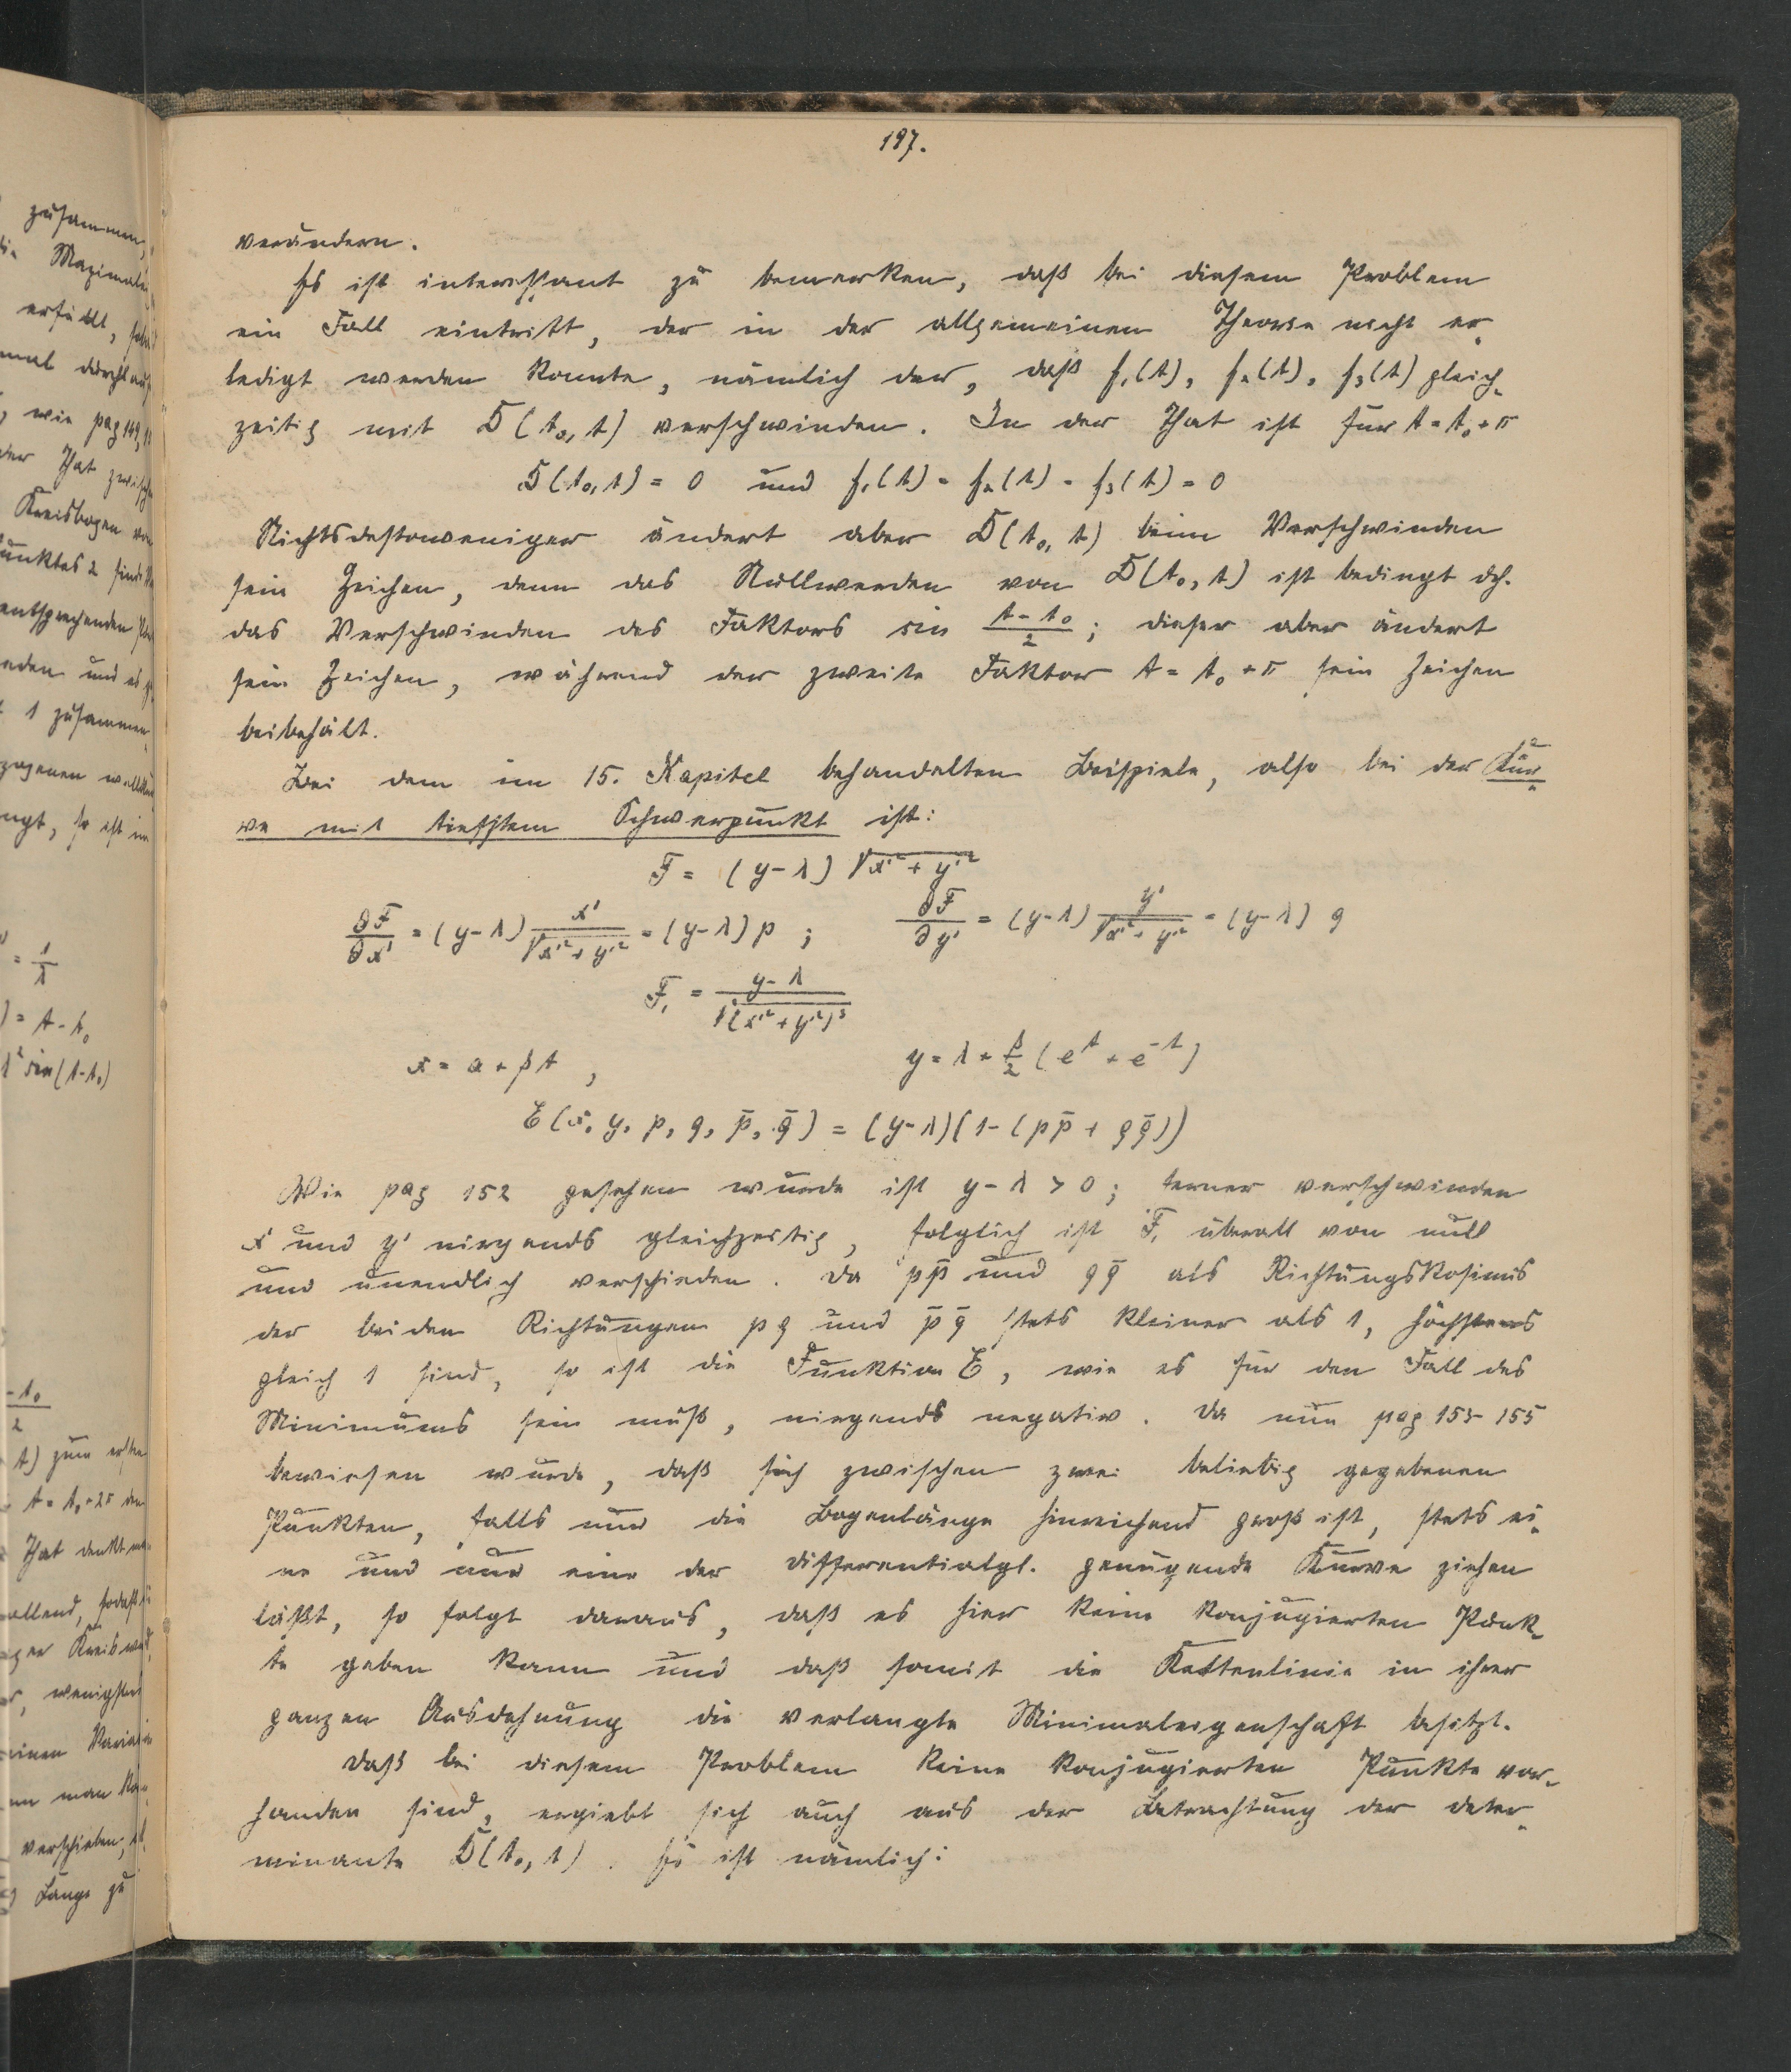 197.
verändern.
Es ist interessant zu bemerken, daß bei diesem Problem
ein Fall eintritt, der in der allgemeinen Theorie nicht er-
ledigt werden konnte, nämlich der, daß f₁(t), f₂(t), f₃(t) gleich-
zeitig mit D(t₀, t) verschwinden. In der That ist für t = t₀ + π
D(t₀, t) = 0 und f₁(t) = f₂(t) = f₃(t) = 0
Nichtsdestoweniger ändert aber D(t₀, t) beim Verschwinden
sein Zeichen, denn das Nullwerden von D(t₀, t) ist bedingt dch.
das Verschwinden des Faktors sin (t - t₀)/2; dieser aber ändert
sein Zeichen, während der zweite Faktor t = t₀ + π sein Zeichen
beibehält.
Bei dem im 15. Kapitel behandelten Beispiele, also bei der Kur-
ve mit tiefstem Schwerpunkt ist:
F = (y - λ) √(x'² + y'²)
∂F/∂x' = (y - λ) x'/√(x'² + y'²) = (y - λ) p ; ∂F/∂y' = (y - λ) y'/√(x'² + y'²) = (y - λ) q
F₁ = (y - λ)/√((x'² + y'²)³)
x = α + βt , y = λ + β/2 (e^t + e^-t)
E(x, y, p, q, p̄, q̄) = (y - λ)(1 - (pp̄ + qq̄))
Wie pag 152 gesehen wurde ist y - λ > 0; ferner verschwinden
x' und y' nirgends gleichzeitig, folglich ist F₁ überall von null
und unendlich verschieden. Da pp̄ und qq̄ als Richtungskosinus
der beiden Richtungen pq und p̄q̄ stets kleiner als 1, höchstens
gleich 1 sind, so ist die Funktion E, wie es für den Fall des
Minimums sein muß, nirgends negativ. Da nun pag 153-155
bewiesen wurde, daß sich zwischen zwei beliebig gegebenen
Punkten, falls nur die Bogenlänge hinreichend groß ist, stets ei-
ne und nur eine der Differentialgl. genügende Kurve ziehen
läßt, so folgt daraus, daß es hier keine konjugierten Punk-
te geben kann und daß somit die Kettenlinie in ihrer
ganzen Ausdehnung die verlangte Minimaleigenschaft besitzt.
Daß bei diesem Problem keine konjugierten Punkte vor-
handen sind, ergiebt sich auch aus der Betrachtung der Deter-
minante D(t₀, t). Es ist nämlich: